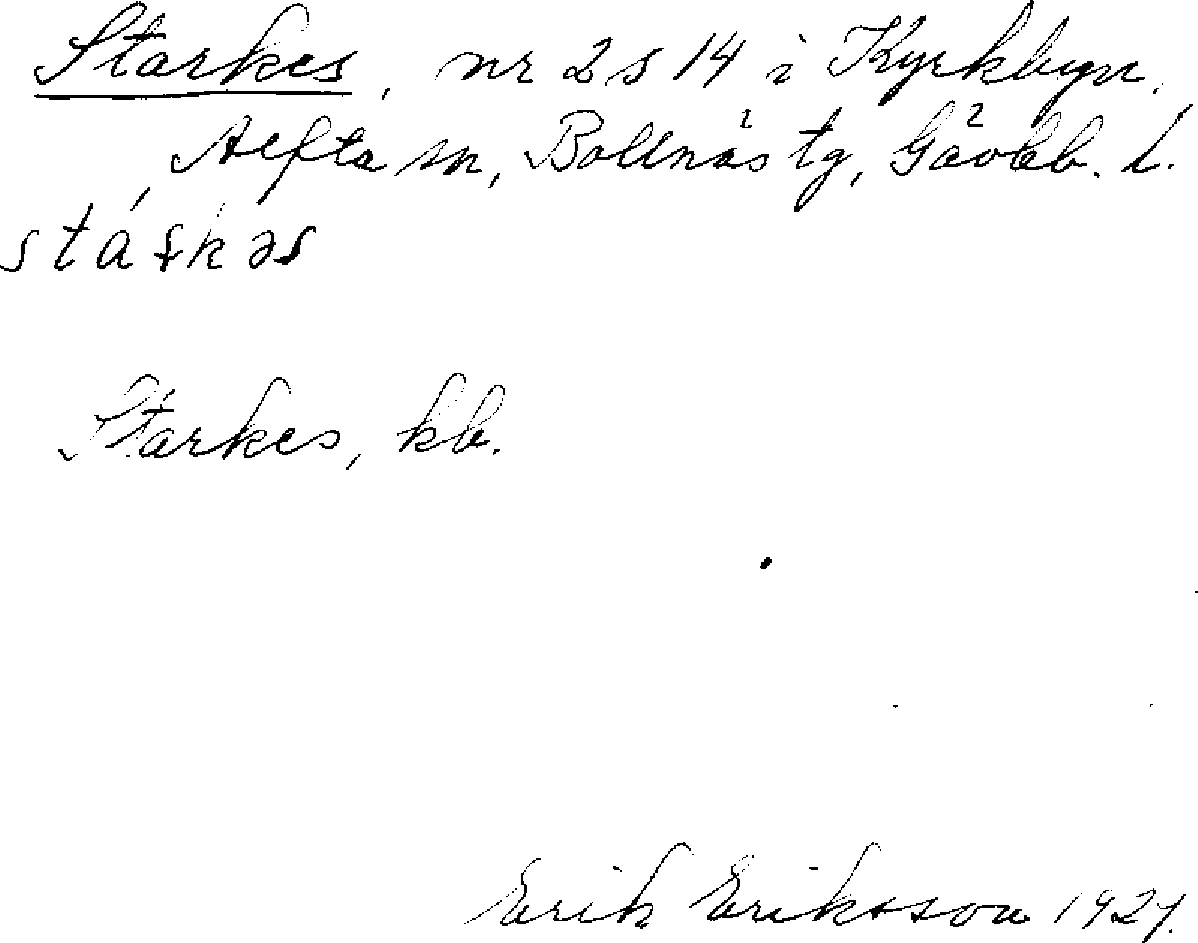 Starkes, nr 2 s 14 i Kyrkbyn.
Alfta sn, Bollnäs tg, Gävleb. l.
stárkəs
Starkes, kb.
Erik Eriksson 1927.